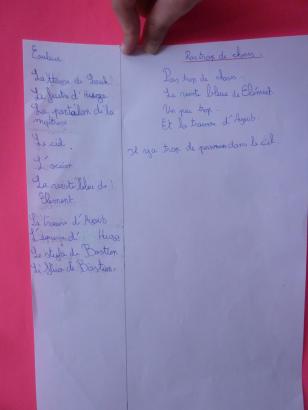 Couleur
La trousse de Sarah.
Le feutre d'Hugo
Le pantalon de la
maîtresse
Le ciel.
L'océan
La veste bleue de
Clément.
La trousse d'Ayoub
L'équerre d' Hugo
Le stylo de Bastien
Le fluo de Bastien.
Pas trop de choses.
Pas trop de choses.
La veste bleue de Clément.
Un peu trop.
Et la trousse d'Ayoub.
Il y a trop de personnes dans le ciel.